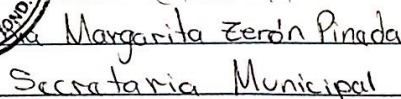 Margarita Zerón Pinada
Secretaria Municipal